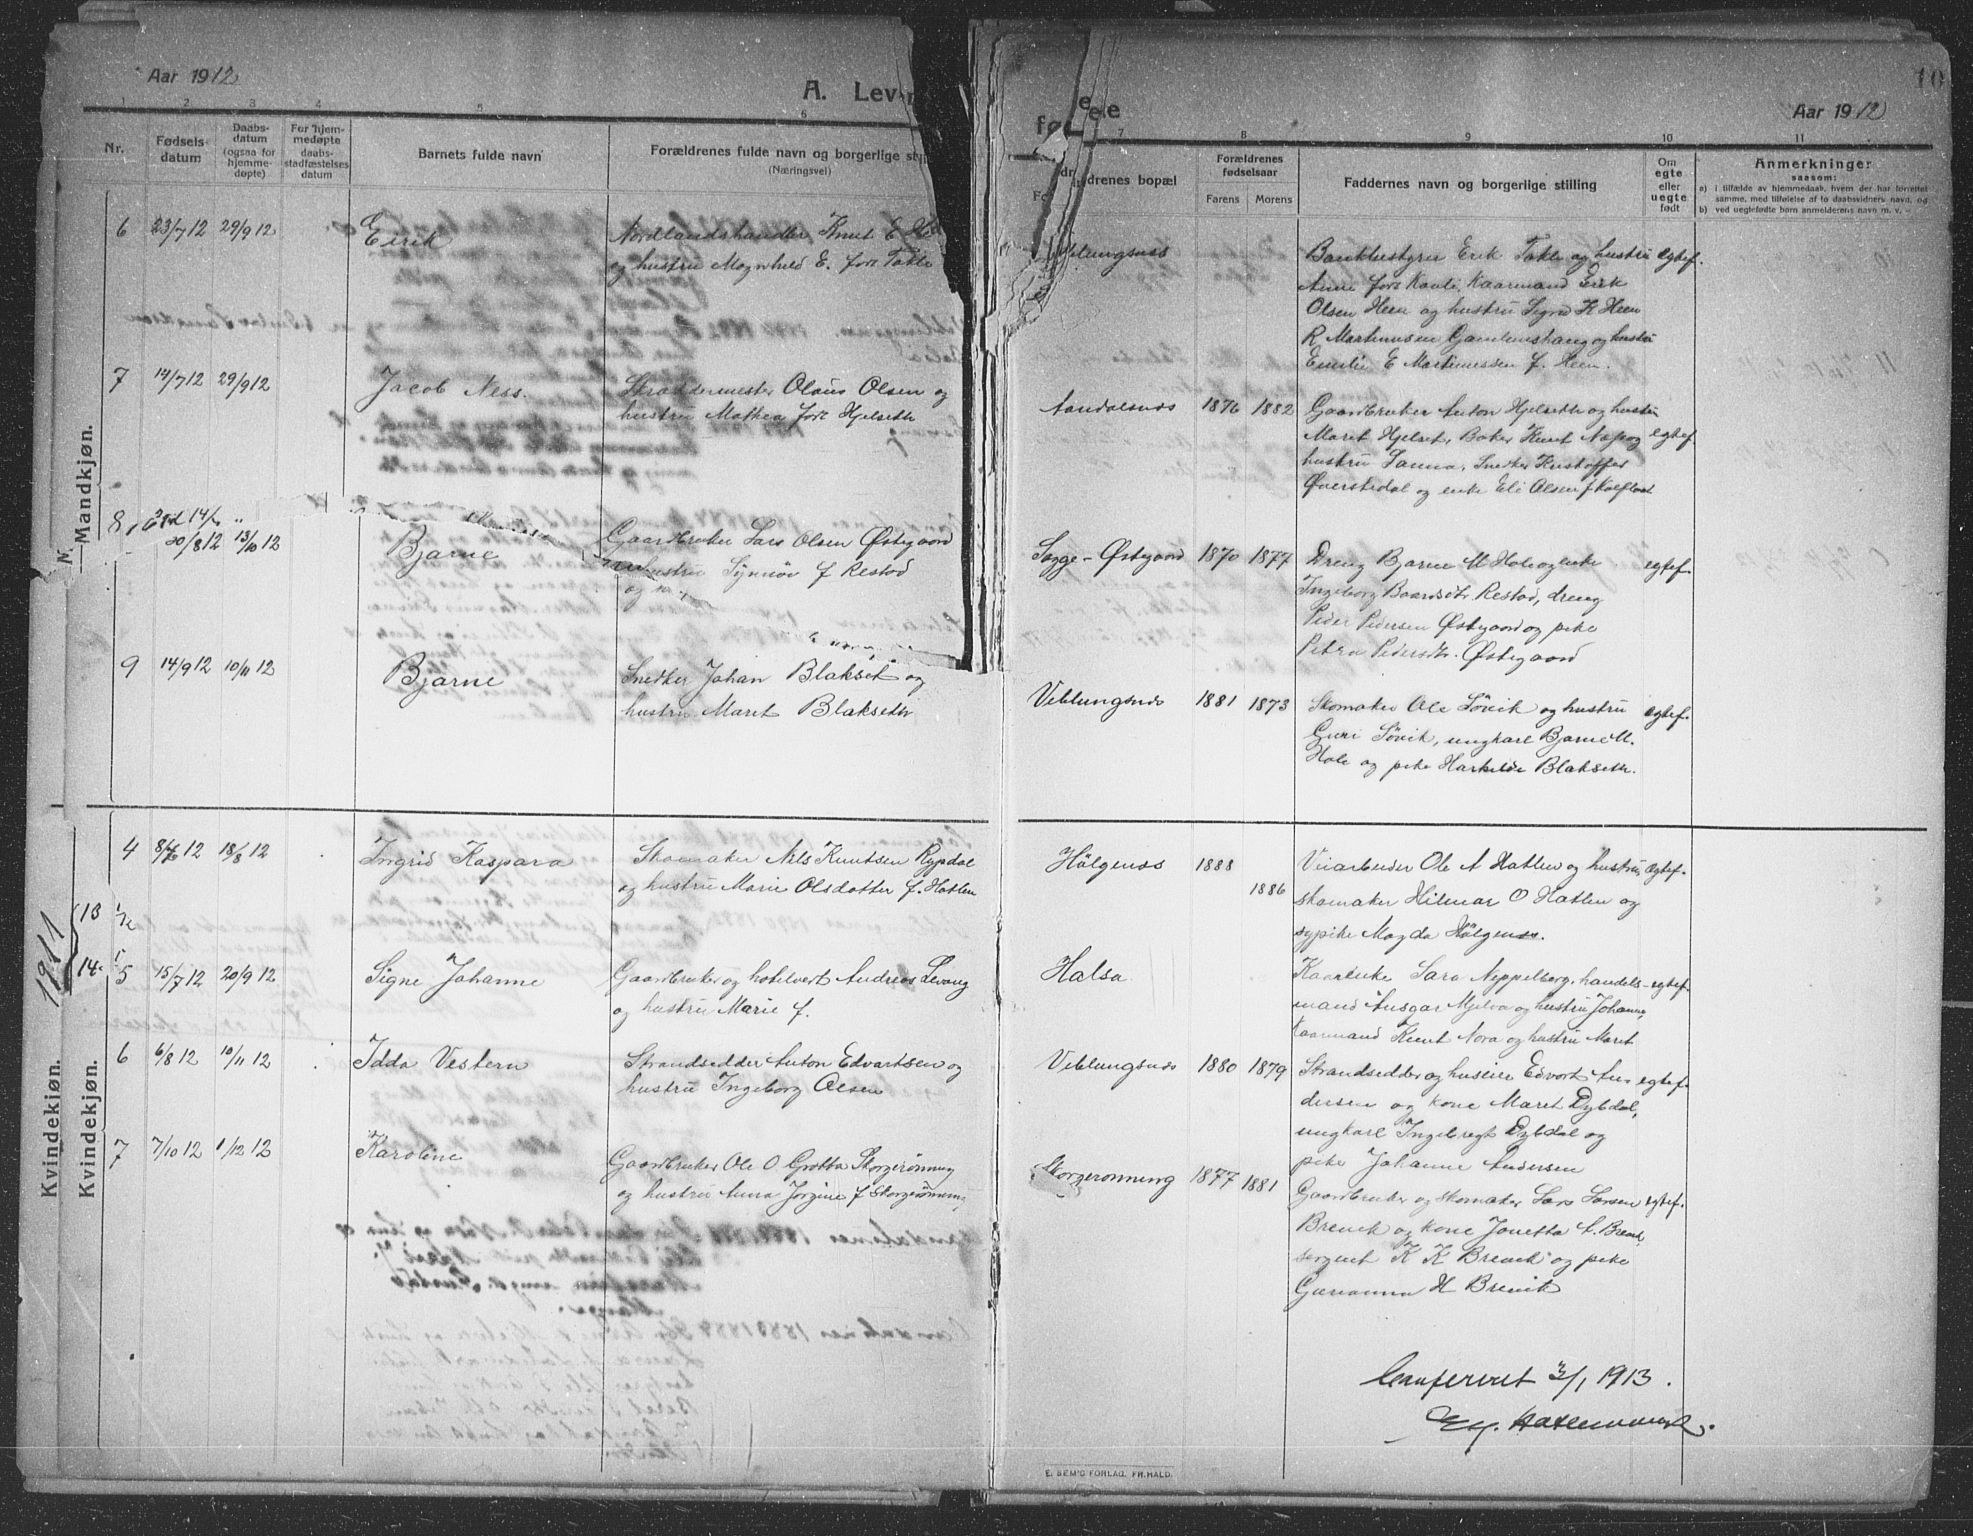 Aar 1912
A. Leven
1 2 3 4 5 6
Nr.
Fødsels-
datum
Daabs-
datum
(ogsaa for
hjemme-
døpte)
For hjem-
medøpte
daabs-
stadfæstelses
datum
Barnets fulde navn
Forældrenes fulde navn og borgerlige still
(Næringsvei)
Mandkjøn.
6 23/7 12 29/9 12 Eirik Nordlandshandler Knut E. He
og hustru Magnhild E. født Takle
7 14/7 12 29/9 12 Jacob Ness. Skræddermester Olaus Olsen og
hustru Mathea født Hjelseth
8
20/8 12 13/10 12 Bjarne Gaardbruker Lars Olsen Østegaard
hustru Synnøv f Restad
9 14/9 12 10/11 12 Bjarne Snedker Johan Blakset og
hustru Maret Blakseth
4 8/6 12 18/8 12 Ingrid Kaspara Skomaker Nils Knutsen Rypdal
og hustru Marie Olsdatter f. Hatlen
1911
13
14
5 15/7 12 20/9 12 Signe Johanne Gaardbruker og hotelvert Andreas Levang
og hustru Marie f.
6 6/8 12 10/11 12 Idda Vestern Strandsidder Anton Edvartsen og
hustru Ingeborg Olsen
7 7/10 12 1/12 12 Karoline Gaardbruker Ole O Grotta Skorgerønning
og hustru Anna Jørgine f Skorgerønning
Kvindekjøn.
Kvindekjøn.
10
fø e e e
Aar 1912
7 8 9 10 11
drenes bopæl
Forældrenes
fødselsaar
Farens Morens
Faddernes navn og borgerlige stilling
Om
egte
eller
uegte
født
Anmerkninger
saasom:
a) i tilfælde av hjemmedaab, hvem der har forrettet
samme, med tilføielse af to daabsvidners navn, og
b) ved uegtefødte børn anmelderens navn m. v.
Veblungsnes Bankbestyrer Erik Takle og hustru egtef.
Anne født Kavli, Kaarmand Erik
Olsen Heen og hustru Sigrid K Heen
R Martinussen Gamlemshaug og hustru
Emilie E Martinussen f. Heen.
Aandalsnæs 1876 1882 Gaardbruker Anton Hjelseth og hustru
Maret Hjelset, Baker Knut Næs og egtef
hustru Sanna, Snedker Kristoffer
Øverstedal og enke Eli Olsen f Kolflaat
Sogge - Østegaard 1870 1877 Dreng Bjarne M Hole og enke egtef.
Ingeborg Baardsdtr Restad, dreng
Peder Pedersen Østegaard og pike
Petra Pedersdtr. Østegaard
Veblungsnæs 1881 1873 Skomaker Ole Søvik og hustru egtef.
Guri Søvik, ungkarl Bjarne M.
Hole og pike Hathilde Blakseth.
Hølgenæs 1888 1886 Veiarbeider Ole A Hatlen og hustru egtef.
skomaker Hilmar O Hatlen og
sypike Magda Hølgenæs.
Halsa Kaarenke Sara Neppelberg, handels- egtef.
mand Ansgar Mjelva og hustru Johanne,
kaarmand Knut Nora og hustru Maret
Veblungsnæs 1880 1879 Strandsidder og huseier Edvart An- egtef-
dersen og kone Maret Dybdal,
ungkarl Ingebregt Dybdal og
pike Johanne Andersen
Skorgerønning 1877 1881 Gaardbruker og skomaker Lars Larsen egtef.
Brevik og kone Jonetta L. Brevik,
sergent K K Brevik og pike
Gurianna H Brevik
Confereret 3/1 1913.
E. SEM'S FORLAG. FR.HALD.